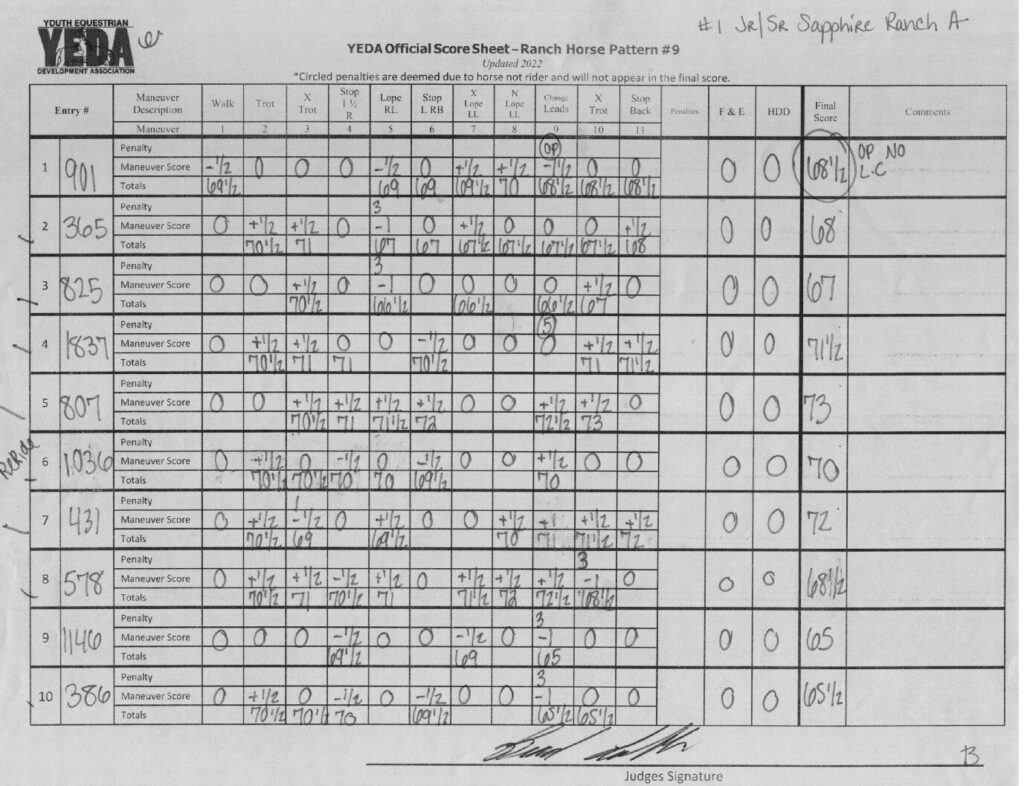 YOUTH EQUESTRIAN
YEDA
DEVELOPMENT ASSOCIATION
#1 JR/SR Sapphire Ranch A
YEDA Official Score Sheet – Ranch Horse Pattern #9
Updated 2022
*Circled penalties are deemed due to horse not rider and will not appear in the final score.
Entry # Maneuver Description Walk Trot X Trot Stop 1 ½ R Lope RL Stop L RB X Lope LL N Lope LL Change Leads X Trot Stop Back Penalties F & E HDD Final Score Comments
Maneuver 1 2 3 4 5 6 7 8 9 10 11
Penalty OP
1 901 Maneuver Score -1/2 0 0 0 -1/2 0 +1/2 +1/2 -1/2 0 0 0 0 68 1/2 OP NO L.C
Totals 69 1/2 69 69 69 1/2 70 68 1/2 68 1/2 68 1/2
Penalty 3
2 365 Maneuver Score 0 +1/2 +1/2 0 -1 0 +1/2 0 0 0 +1/2 0 0 68
Totals 70 1/2 71 67 67 67 1/2 67 1/2 67 1/2 67 1/2 68
Penalty 3
3 825 Maneuver Score 0 0 +1/2 0 -1 0 0 0 0 +1/2 0 0 0 67
Totals 70 1/2 66 1/2 66 1/2 66 1/2 67
Penalty 5
4 1837 Maneuver Score 0 +1/2 +1/2 0 0 -1/2 0 0 0 +1/2 +1/2 0 0 71 1/2
Totals 70 1/2 71 71 70 1/2 71 71 1/2
Penalty
5 807 Maneuver Score 0 0 +1/2 +1/2 +1/2 +1/2 0 0 +1/2 +1/2 0 0 0 73
Totals 70 1/2 71 71 1/2 72 72 1/2 73
Penalty
ReRide 6 1036 Maneuver Score 0 +1/2 0 -1/2 0 -1/2 0 0 +1/2 0 0 0 0 70
Totals 70 1/2 70 1/2 70 70 69 1/2 70
Penalty 1
7 431 Maneuver Score 0 +1/2 -1/2 0 +1/2 0 0 +1/2 +1 +1/2 +1/2 0 0 72
Totals 70 1/2 69 69 1/2 70 71 71 1/2 72
Penalty 3
8 578 Maneuver Score 0 +1/2 +1/2 -1/2 +1/2 0 +1/2 +1/2 +1/2 -1 0 0 0 68 1/2
Totals 70 1/2 71 70 1/2 71 71 1/2 72 72 1/2 68 1/2
Penalty 3
9 1146 Maneuver Score 0 0 0 -1/2 0 0 -1/2 0 -1 0 0 0 0 65
Totals 69 1/2 69 65
Penalty 3
10 386 Maneuver Score 0 +1/2 0 -1/2 0 -1/2 0 0 -1 0 0 0 0 65 1/2
Totals 70 1/2 70 1/2 70 69 1/2 65 1/2 65 1/2
B
Judges Signature